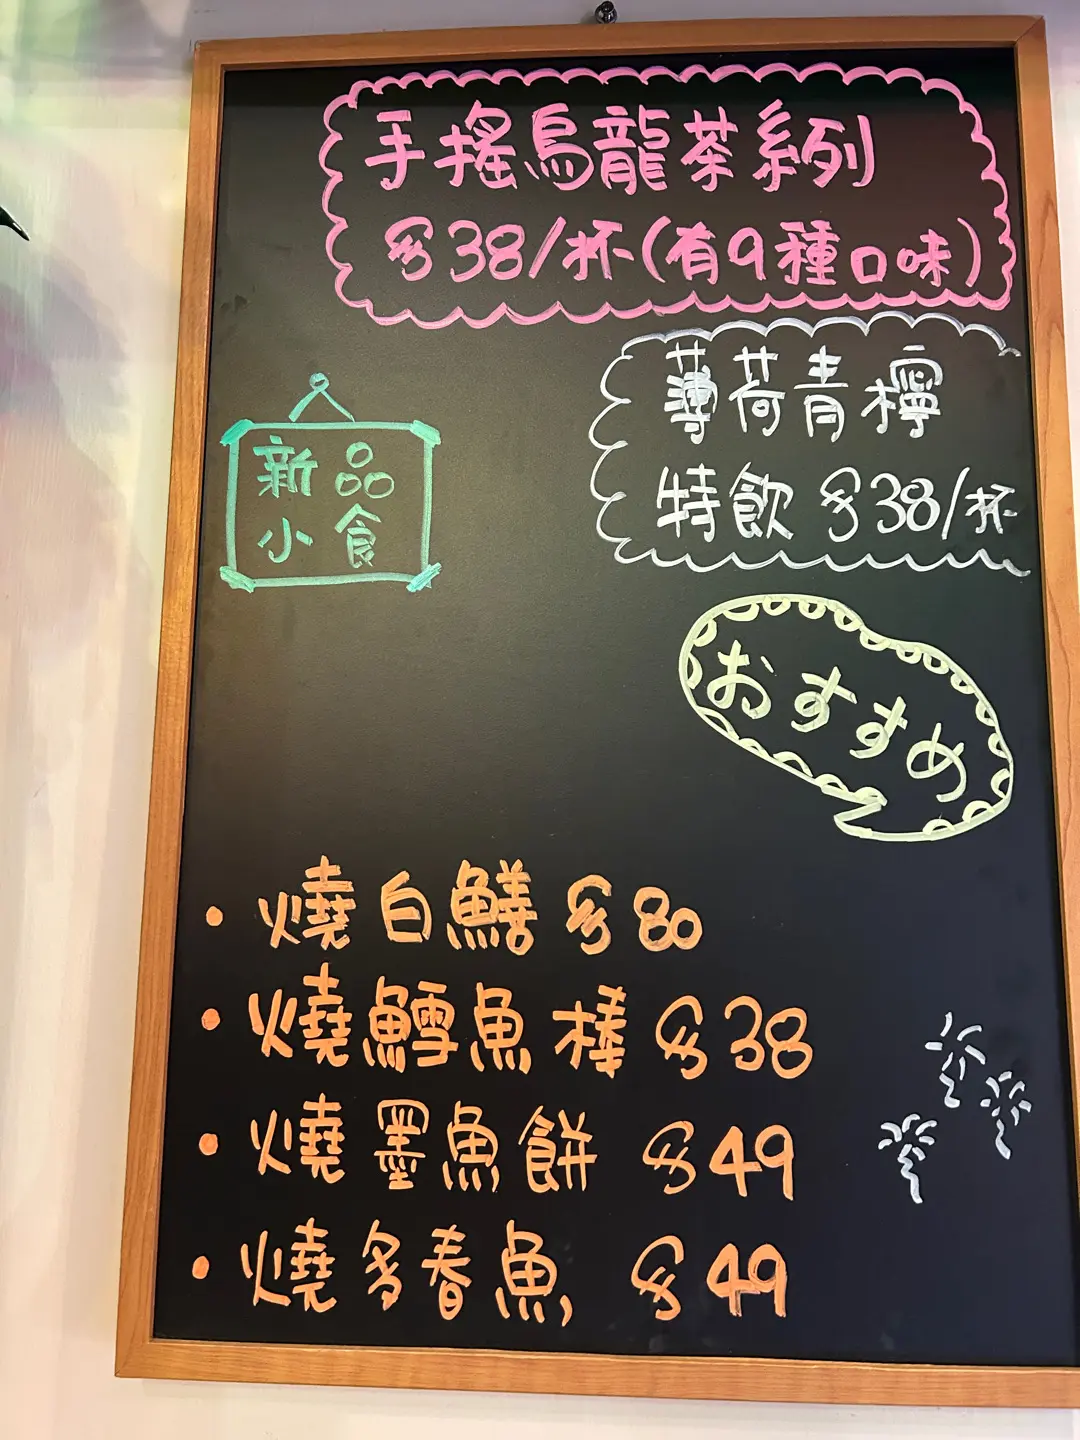 手搖烏龍茶系列
$38/杯(有9種口味)
薄荷青檸
特飲 $38/杯
新品
小食
おすすめ
• 燒白鱔 $80
• 燒鱈魚棒 $38
• 燒墨魚餅 $49
• 燒多春魚 $49